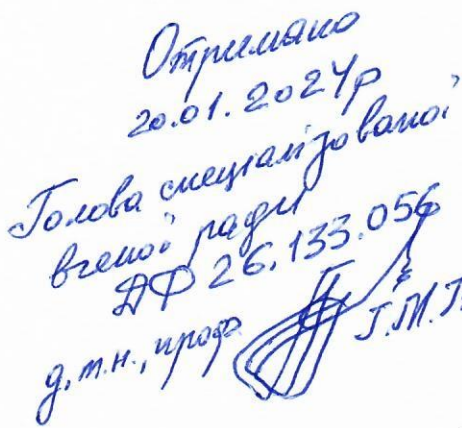 Отримано
20.01.2024р
Голова спеціалізованої
вченої ради
ДФ 26.133.056
д.т.н., проф.